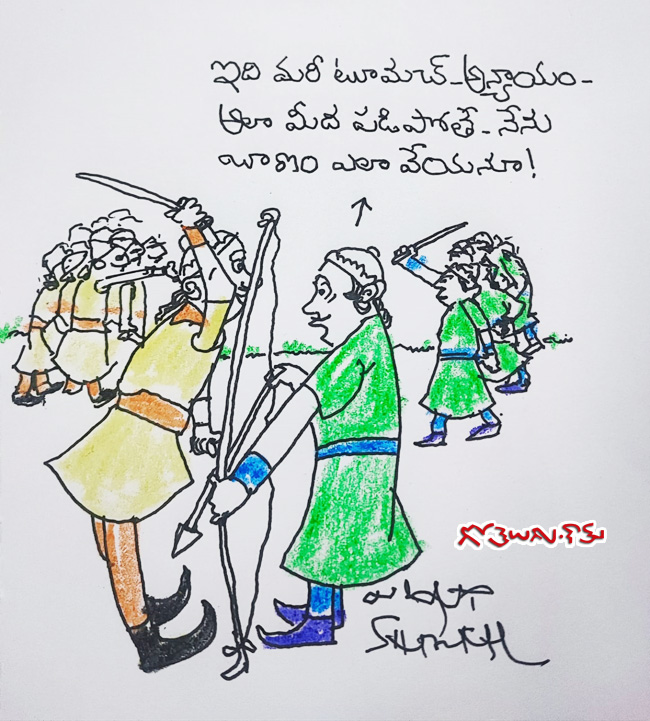 ఇది మరీ టూమచ్-అన్యాయం-
అలా మీద పడిపోతే - నేను
బాణం ఎలా వేయనూ!
గోతెలుగు.కామ్